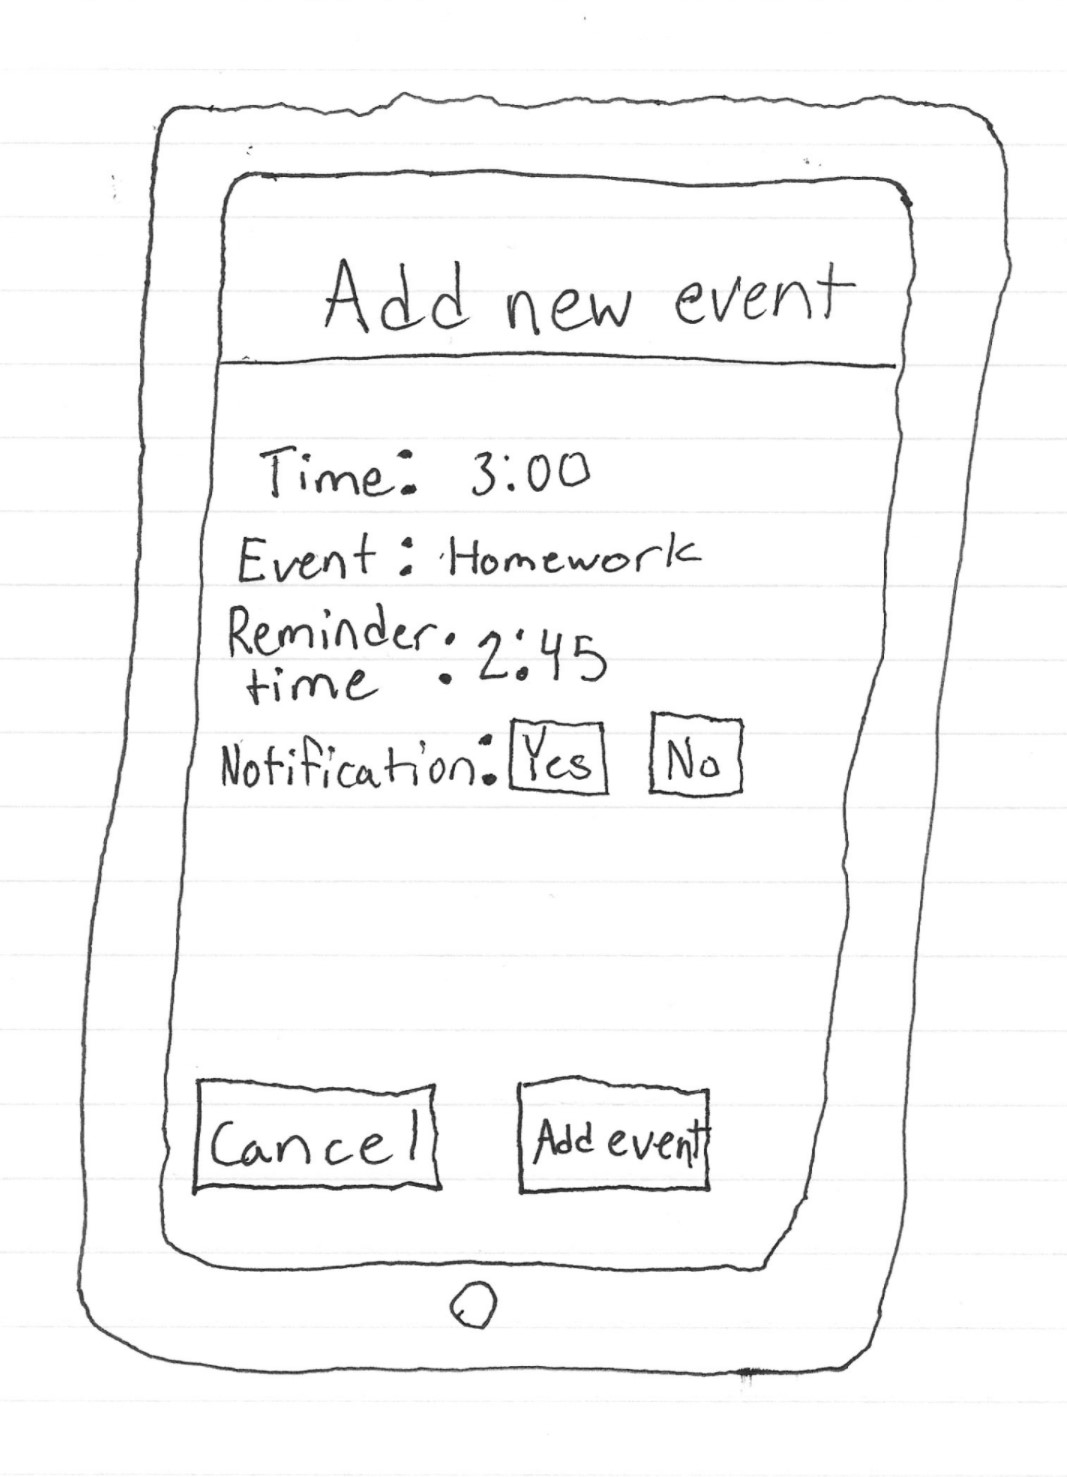 Add new event
Time: 3:00
Event: Homework
Reminder
time : 2:45
Notification: Yes No
Cancel Add event